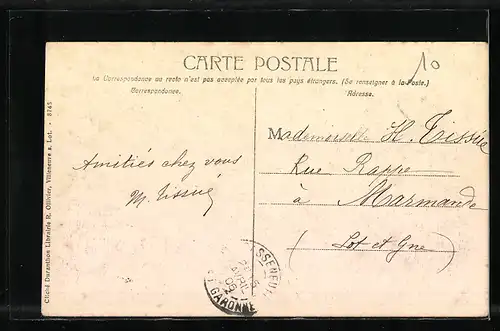 CARTE POSTALE
10
La Correspondance au recto n'est pas acceptée par tous les pays étrangers. (Se renseigner à la Poste.)
Correspondance.
Adresse.
Mademoiselle H. Tissié
Rue Rappe
à Marmande
(Lot et Gne)
Amitiés chez vous
M. Tissié
AVRIL
GARONNE
Cliché Duranthon Librairie R. Ollivier, Villeneuve s. Lot. - 8745